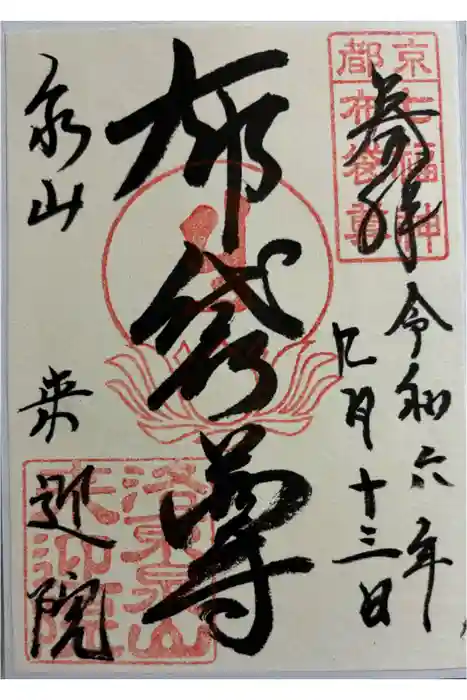 京都
七福神
布袋尊
奉拝
令和六年
月十三日
布袋尊
泉山
来迎院
来迎院